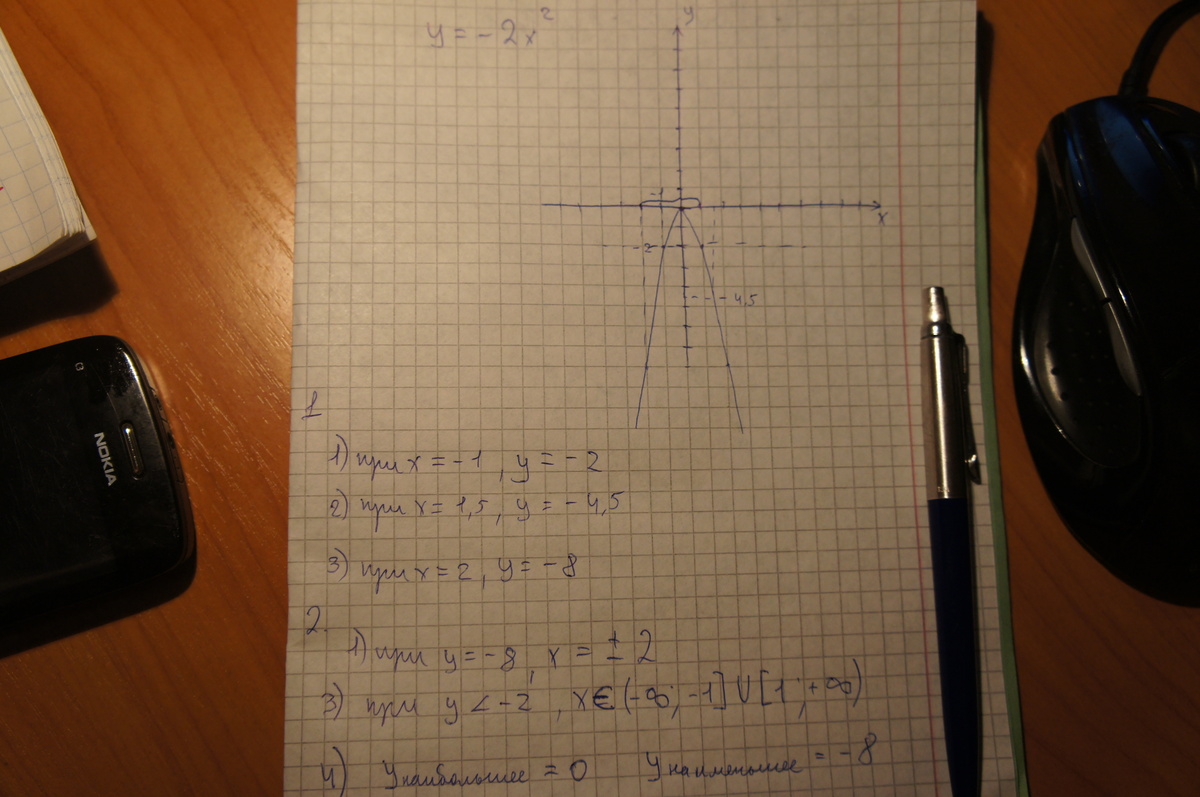 y = -2x²
y
-1
x
-2
-4,5
1
1) при x = -1, y = -2
2) при x = 1,5, y = -4,5
3) при x = 2, y = -8
2.
1) при y = -8, x = ± 2
3) при y < -2, x∈(-∞; -1]∪[1; +∞)
4) yнаибольшее = 0 yнаименьшее = -8
NOKIA